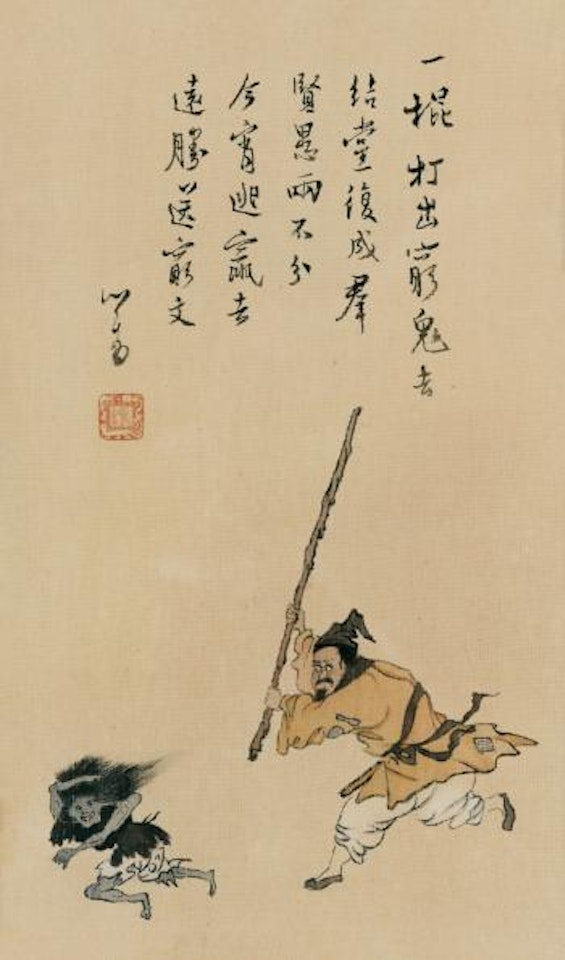 一棍打出窮鬼去
結黨復成羣
賢愚兩不分
今宵逃竄去
遠勝送窮文
心畬